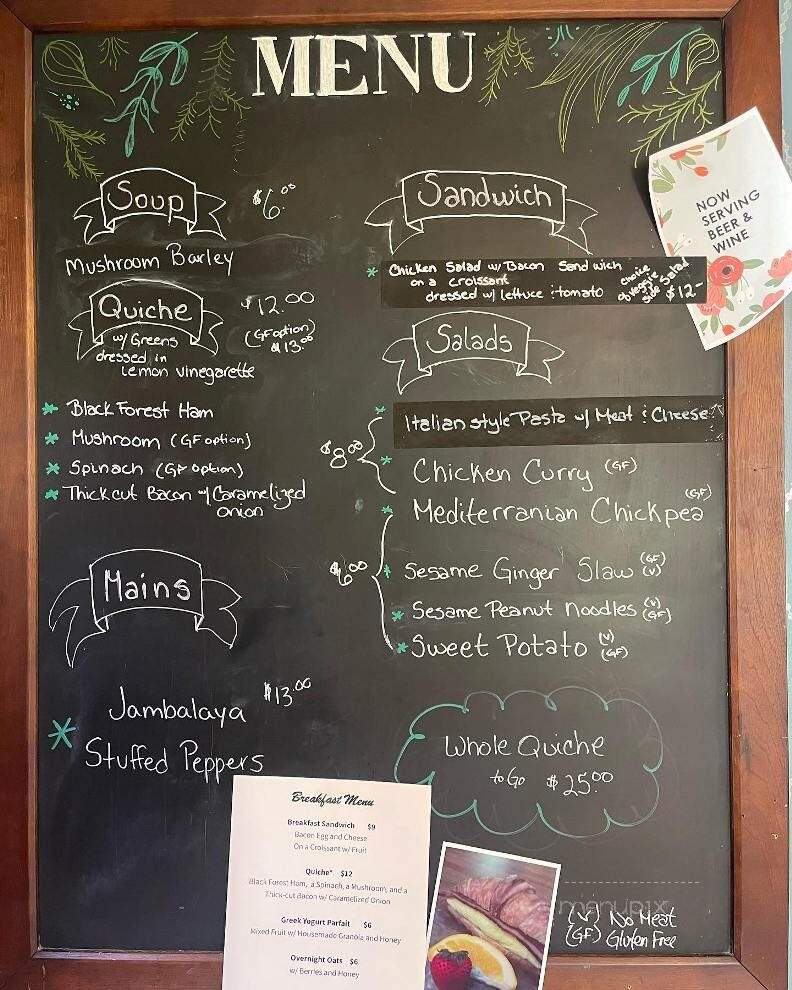 MENU
Soup $6.00
Mushroom Barley
Quiche $12.00
w/ Greens (GF option)
dressed in $13.00
Lemon vinegarette
* Black Forest Ham
* Mushroom (GF option)
* Spinach (GF option)
* Thick cut Bacon w/ Caramelized
onion
Mains
Jambalaya $13.00
* Stuffed Peppers
NOW
SERVING
BEER &
WINE
Sandwich
* Chicken Salad w/ Bacon Sandwich
on a croissant
dressed w/ lettuce & tomato
choice
of veggie
side salad
$12-
Salads
* Italian style Pasta w/ Meat & Cheese
$8.00
* Chicken Curry (GF)
* Mediterranean Chickpea (GF)
$6.00
* Sesame Ginger Slaw (GF) (V)
* Sesame Peanut Noodles (V) (GF)
* Sweet Potato (V) (GF)
Whole Quiche
to Go $25.00
Breakfast Menu
Breakfast Sandwich $9
Bacon Egg and Cheese
On a Croissant w/ Fruit
Quiche* $12
Black Forest Ham, a Spinach, a Mushroom, and a
Thick-cut Bacon w/ Caramelized Onion
Greek Yogurt Parfait $6
Mixed Fruit w/ Housemade Granola and Honey
Overnight Oats $6
w/ Berries and Honey
menupix
(V) No Meat
(GF) Gluten Free